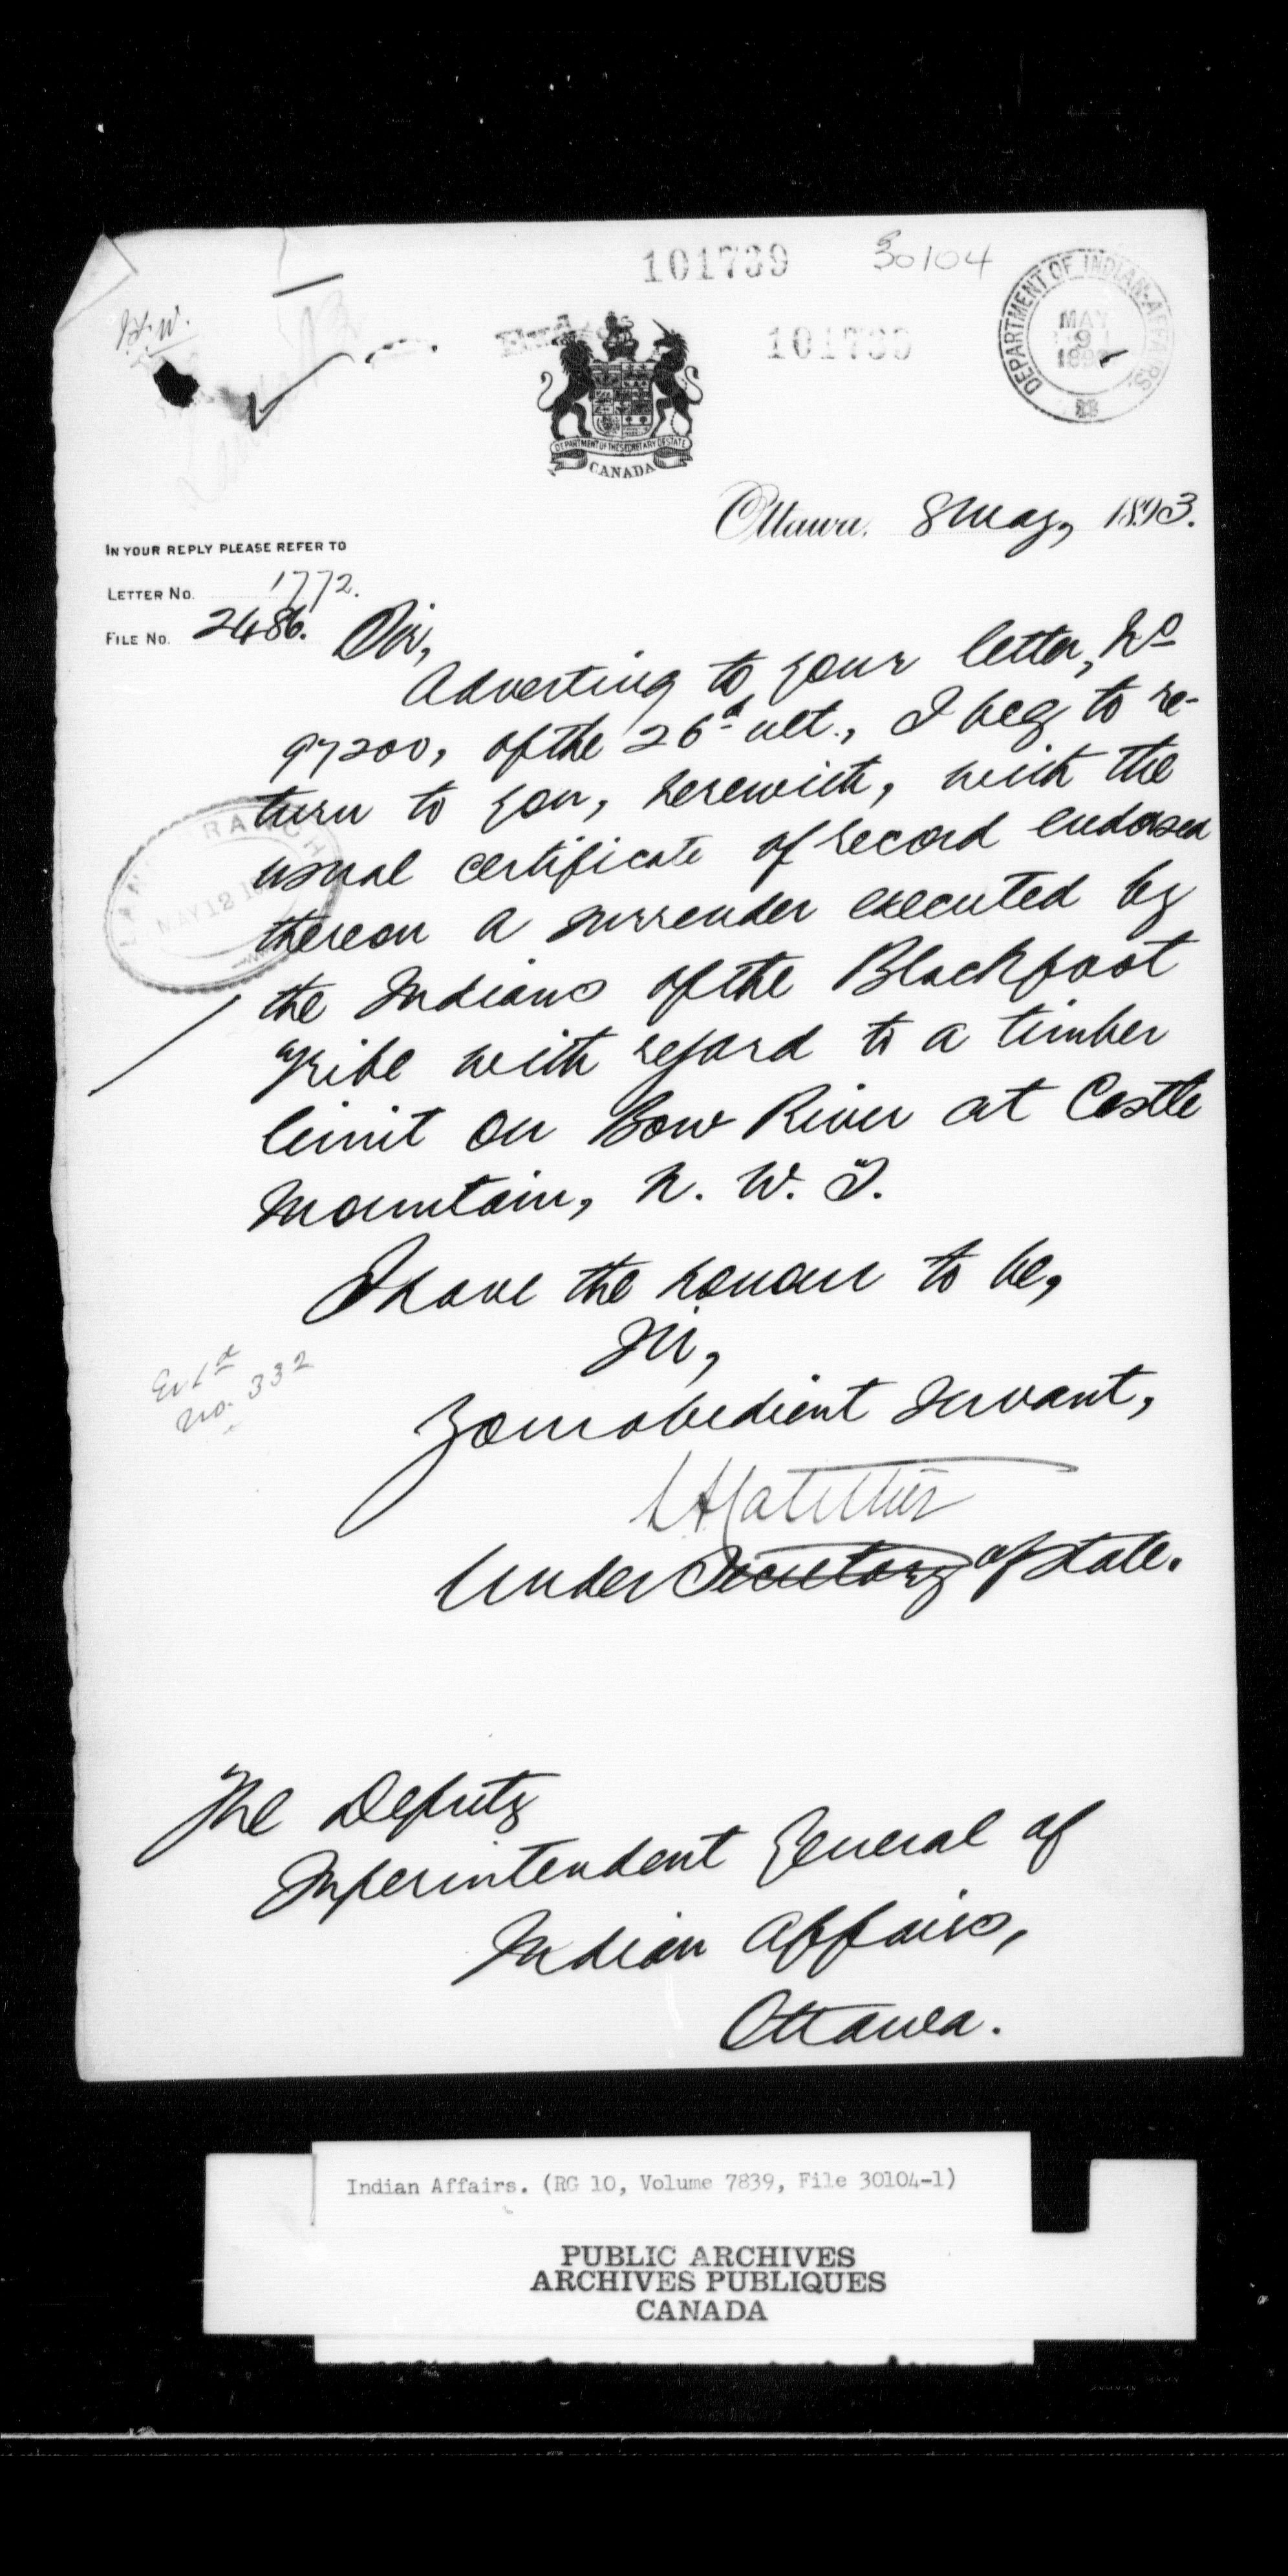 101739 30104
DEPARTMENT OF INDIAN AFFAIRS.
MAY
9
1893
H.W.
101739
DEPARTMENT OF THE SECRETARY OF STATE
CANADA
Ottawa, 8 May, 1893.
IN YOUR REPLY PLEASE REFER TO
LETTER NO. 1772.
FILE NO. 2486.
Sir,
Adverting to your letter, No
97200, of the 26th ult., I beg to re-
turn to you, herewith, with the
usual certificate of record endorsed
thereon a surrender executed by
the Indians of the Blackfoot
Tribe with regard to a timber
limit on Bow River at Castle
Mountain, N. W. T.
LAND BRANCH
MAY 12
I have the honour to be,
Sir,
Your obedient servant,
Entd
No. 332
Under Secretary of State.
The Deputy
Superintendent General of
Indian Affairs,
Ottawa.
Indian Affairs. (RG 10, Volume 7839, File 30104-1)
PUBLIC ARCHIVES
ARCHIVES PUBLIQUES
CANADA